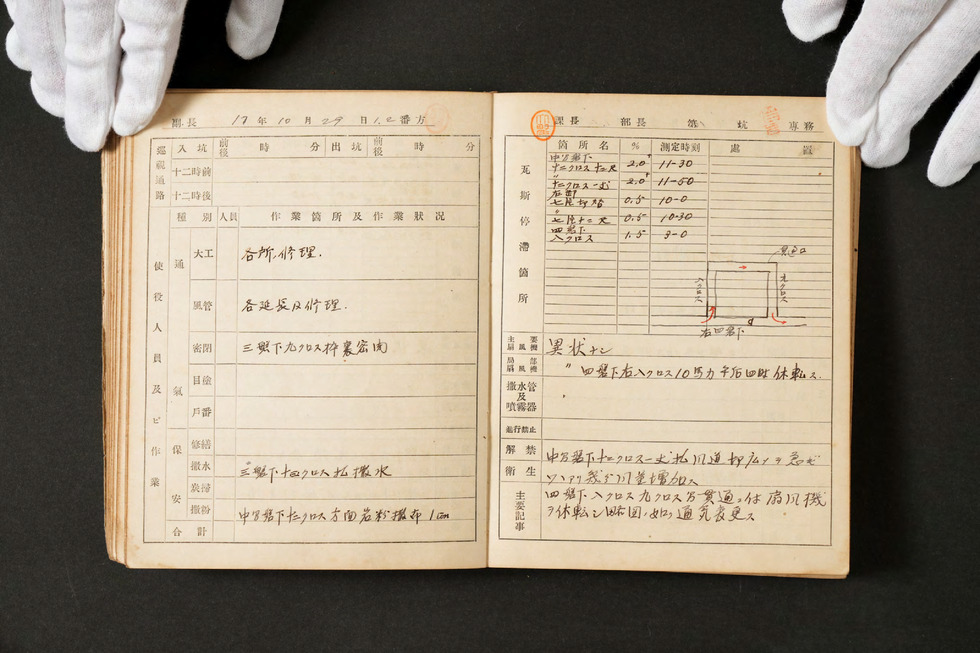 副長 17年10月29日1.2番方
巡視通路
入坑 前後 時 分 出坑 前後 時 分
十二時前
十二時後
使役人員及ビ作業
種別 人員 作業箇所及作業狀況
通氣
大工 各所修理.
風管 各延長及修理.
密閉 三盤下九クロス枠裏密閉
目塗
戶番
保安
修繕
撒水 三盤下十四クロス払撒水
炭掃
撒粉 中万盤下十二クロス方面岩粉撒布
合計
課長 部長 第 坑 専務
瓦斯停滯箇所
箇所名 % 測定時刻 處置
中万盤下
十二クロス十二尺 2.0 11-30
〃
十二クロス一式 2.0 11-50
右卸
七尺 0.5 10-0
〃
七尺十二尺 0.5 10-30
四盤下
入クロス 1.5 9-0
貫通口
入クロス
九クロス
右四盤下
主要扇風機 異状ナシ
局部扇風機 〃 四盤下右入クロス10馬力午后四時休転ス.
撒水管及噴霧器
進行禁止
解禁
衛生
主要記事
中万盤下十二クロス一式払風道
ツヽアリ 増加ス
四盤下入クロス九クロス方貫通ニ付扇風機
ヲ休転シ略図ノ如ク通気変更ス